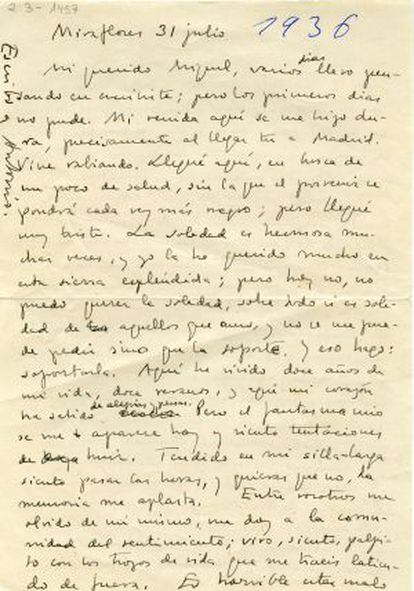 2-3-1457
Miraflores 31 julio 1936
Escribe a Antonio.
días
Mi querido Miguel, varios llevo pen-
sando en escribirte; pero los primeros días
no pude. Mi venida aquí se me hizo du-
ra, precisamente al llegar tú a Madrid.
Vine rabiando. Llegué aquí, en busca de
un poco de salud, sin la que el porvenir se
pondrá cada vez más negro; pero llegué
muy triste. La soledad es hermosa mu-
chas veces, y yo la he querido mucho en
esta sierra espléndida; pero hoy no, no
puedo querer la soledad, sobre todo si es sole-
dad de aquellos que amo, y no se me pue-
de pedir sino que la soporte. Y eso hago:
soportarla. Aquí he vivido doce años de
mi vida, doce veranos, y aquí mi corazón
de alegrías y penas.
ha sabido Pero el fantasma mío
se me aparece hoy y siento tentaciones
de huir. Tendido en mi silla-larga
siento pasar las horas, y quieras que no, la
memoria me aplasta. Entre vosotros me
olvido de mí mismo, me doy a la comu-
nidad del sentimiento; vivo, siento, palpi-
to con los trozos de vida que me traéis latien-
do de fuera. Lo horrible estar malo